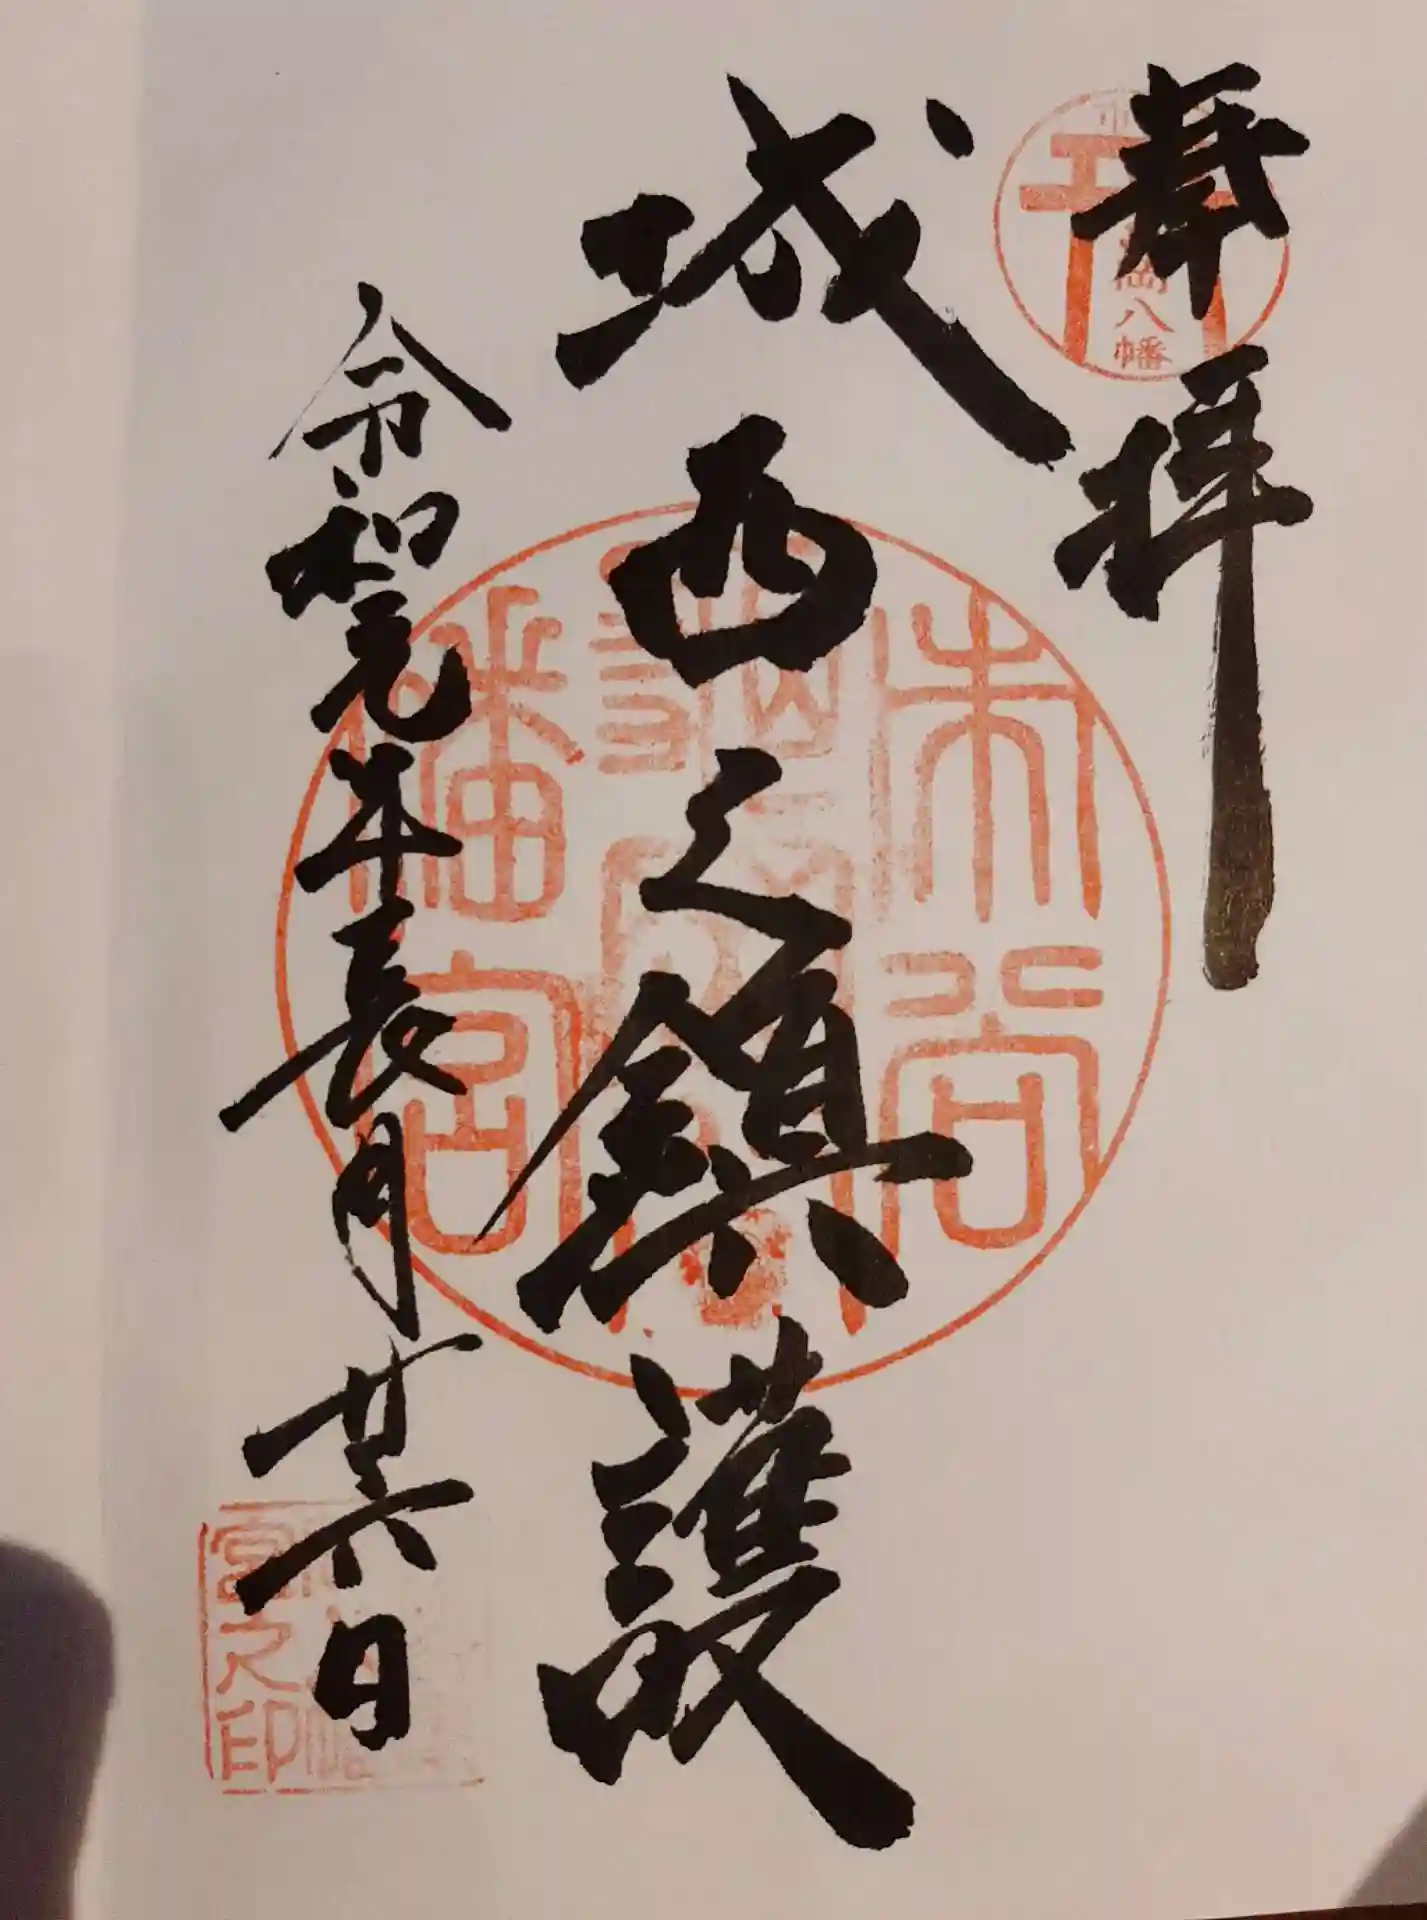 奉拝
城西之鎮護
令和元年長月廿六日
岡八幡
市谷
龜岡八
幡宮
宮之印